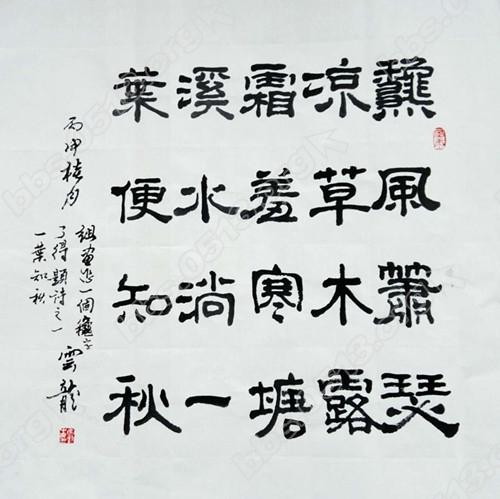 龝風蕭瑟
凉草木露
霜羞寒塘
溪水淌一
葉便知秋
組画怎一個龝字
了得題詩之一
一葉知秋
丙申桂月
雲龍